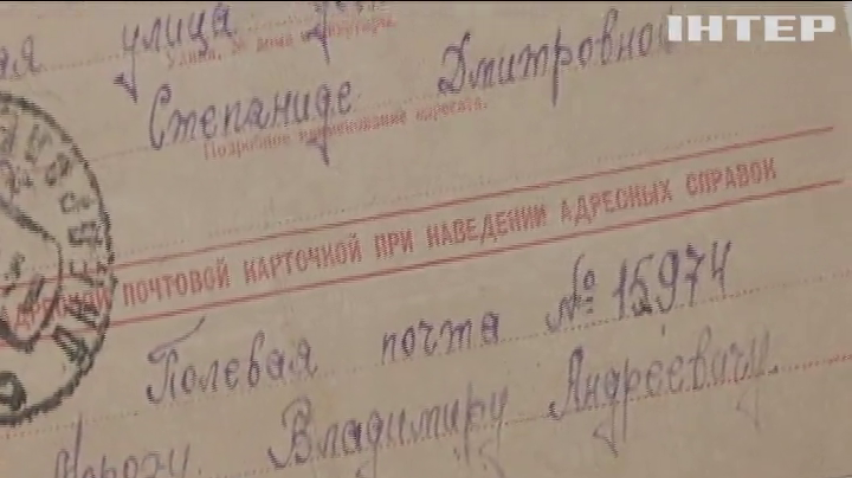 ІНТЕР
ая улица
Улица, № дома и квартиры.
Степаниде Дмитровной
Подробное наименование адресата.
АДРЕСНОЙ ПОЧТОВОЙ КАРТОЧКОЙ ПРИ НАВЕДЕНИИ АДРЕСНЫХ СПРАВОК
Полевая почта № 15974
Владимиру Андреевичу.